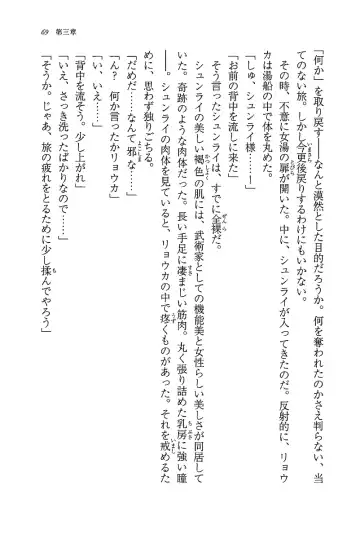 69　第三章
「何か」を取り戻す――なんと漠然とした目的だろうか。何を奪われたのかさえ判らない、当
てのない旅。しかし今更後戻りするわけにもいかない。
その時、不意に女湯の扉が開いた。中に、シュンライが入ってきたのだ。反射的に、リョウ
カは湯船の中で体を丸めた。
「しゅ、シュンライ様……」
「お前の背中を流しに来た」
そう言ったシュンライは、すでに全裸だ。
シュンライの美しい褐色の肌には、武術家としての機能美と女性らしい美しさが同居して
いた。奇跡のような肉体だった。長い手足に凄まじい筋肉。丸く張り詰めた乳房に強い瞳
――。シュンライの肉体を見ていると、リョウカの中で疼くものがあった。それを戒めるた
めに、思わず独りごちる。
「だめだ……なんて邪な……」
「ん？　何か言ったかリョウカ」
「い、いえ……」
「背中を流そう。少し上がれ」
「いえ、さっき洗ったばかりなので……」
「そうか。じゃあ、旅の疲れをとるために少し揉んでやろう」